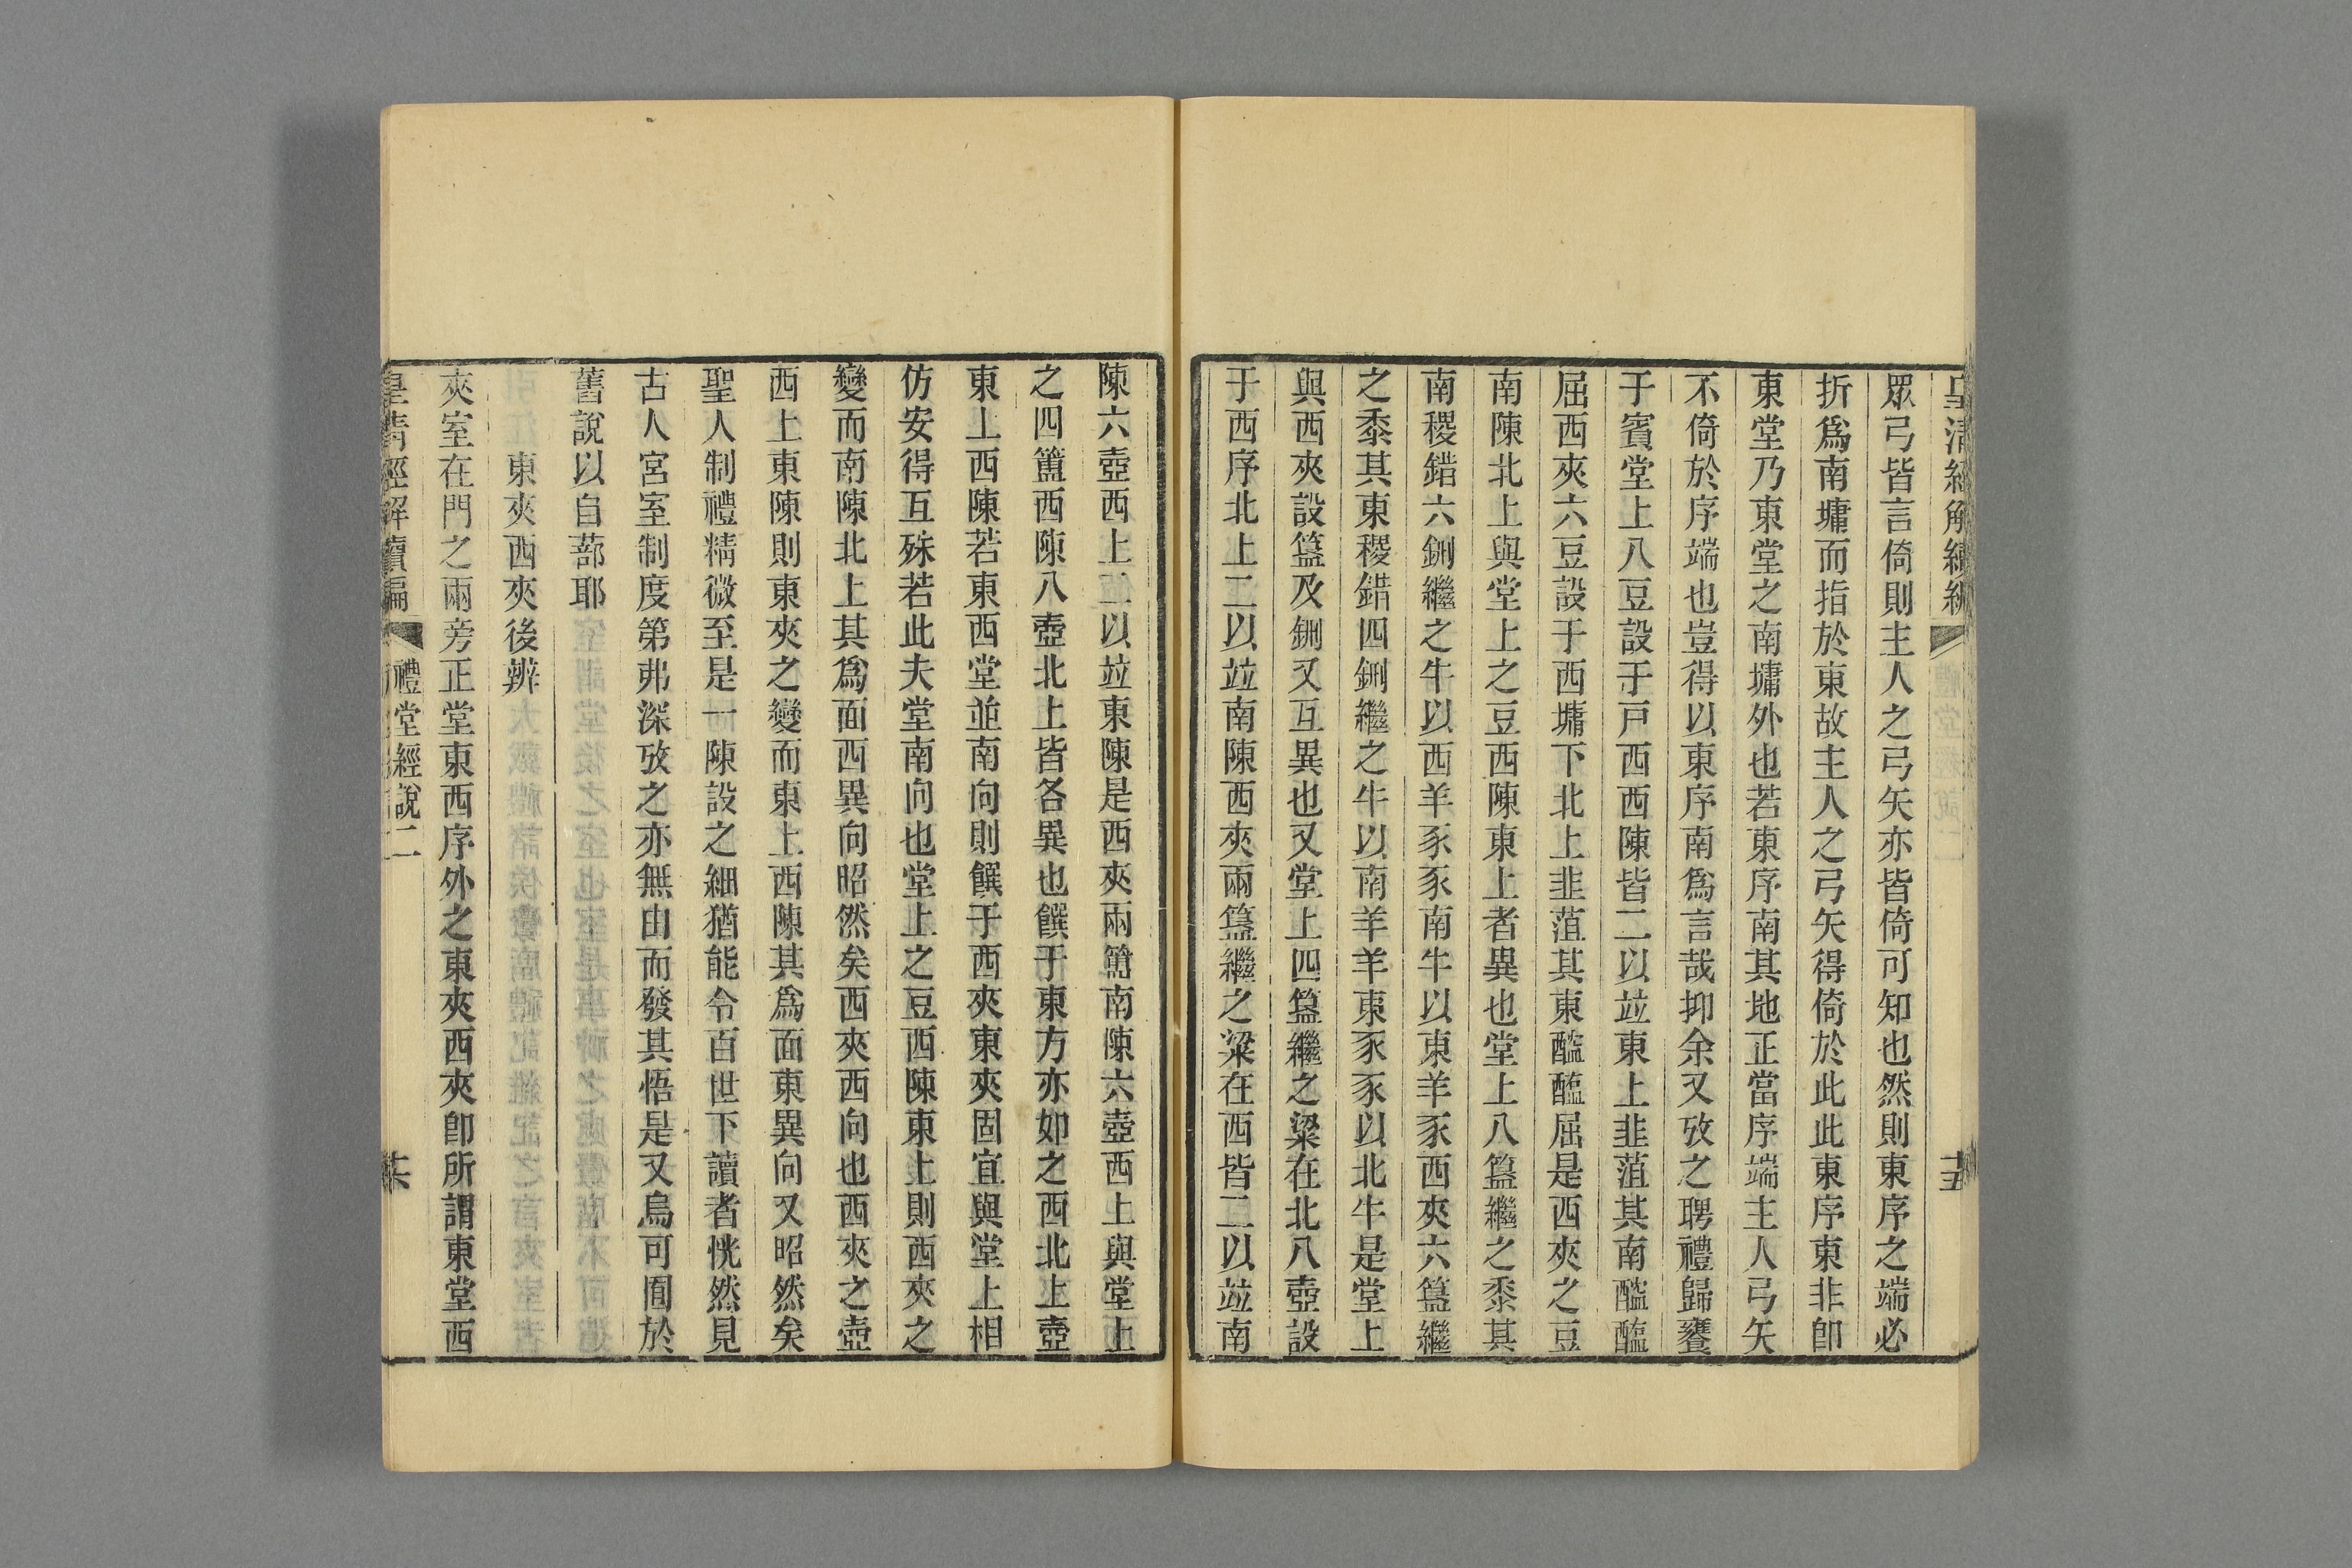 皇清經解續編
十五
眾弓皆言倚則主人之弓矢亦皆倚可知也然則東序之端必
折爲南墉而指於東故主人之弓矢得倚於此此東序東非卽
東堂乃東堂之南墉外也若東序南其地正當序端主人弓矢
不倚於序端也豈得以東序南爲言哉抑余又攷之聘禮歸饔
于賓堂上八豆設于戸西西陳皆二以竝東上韭菹其南醓醢
屈西夾六豆設于西墉下北上韭菹其東醓醢屈是西夾之豆
南陳北上與堂上之豆西陳東上者異也堂上八簋繼之黍其
南稷錯六鉶繼之牛以西羊豕豕南牛以東羊豕西夾六簋繼
之黍其東稷錯四鉶繼之牛以南羊羊東豕豕以北牛是堂上
與西夾設簋及鉶又互異也又堂上四簋繼之粱在北八壺設
于西序北上二以竝南陳西夾兩簋繼之粱在西皆二以竝南
陳六壺西上二以竝東陳是西夾兩簠南陳六壺西上與堂上
之四簠西陳八壺北上皆各異也饌于東方亦如之西北上壺
東上西陳若東西堂並南向則饌于西夾東夾固宜與堂上相
仿安得互殊若此夫堂南向也堂上之豆西陳東上則西夾之
變而南陳北上其爲面西異向昭然矣西夾西向也西夾之壺
西上東陳則東夾之變而東上西陳其爲面東異向又昭然矣
聖人制禮精微至是一陳設之細猶能令百世下讀者恍然見
古人宮室制度第弗深攷之亦無由而發其悟是又烏可囿於
舊說以自蔀耶
東夾西夾後辨
夾室在門之兩旁正堂東西序外之東夾西夾卽所謂東堂西
皇清經解續編
禮堂經說二
十六